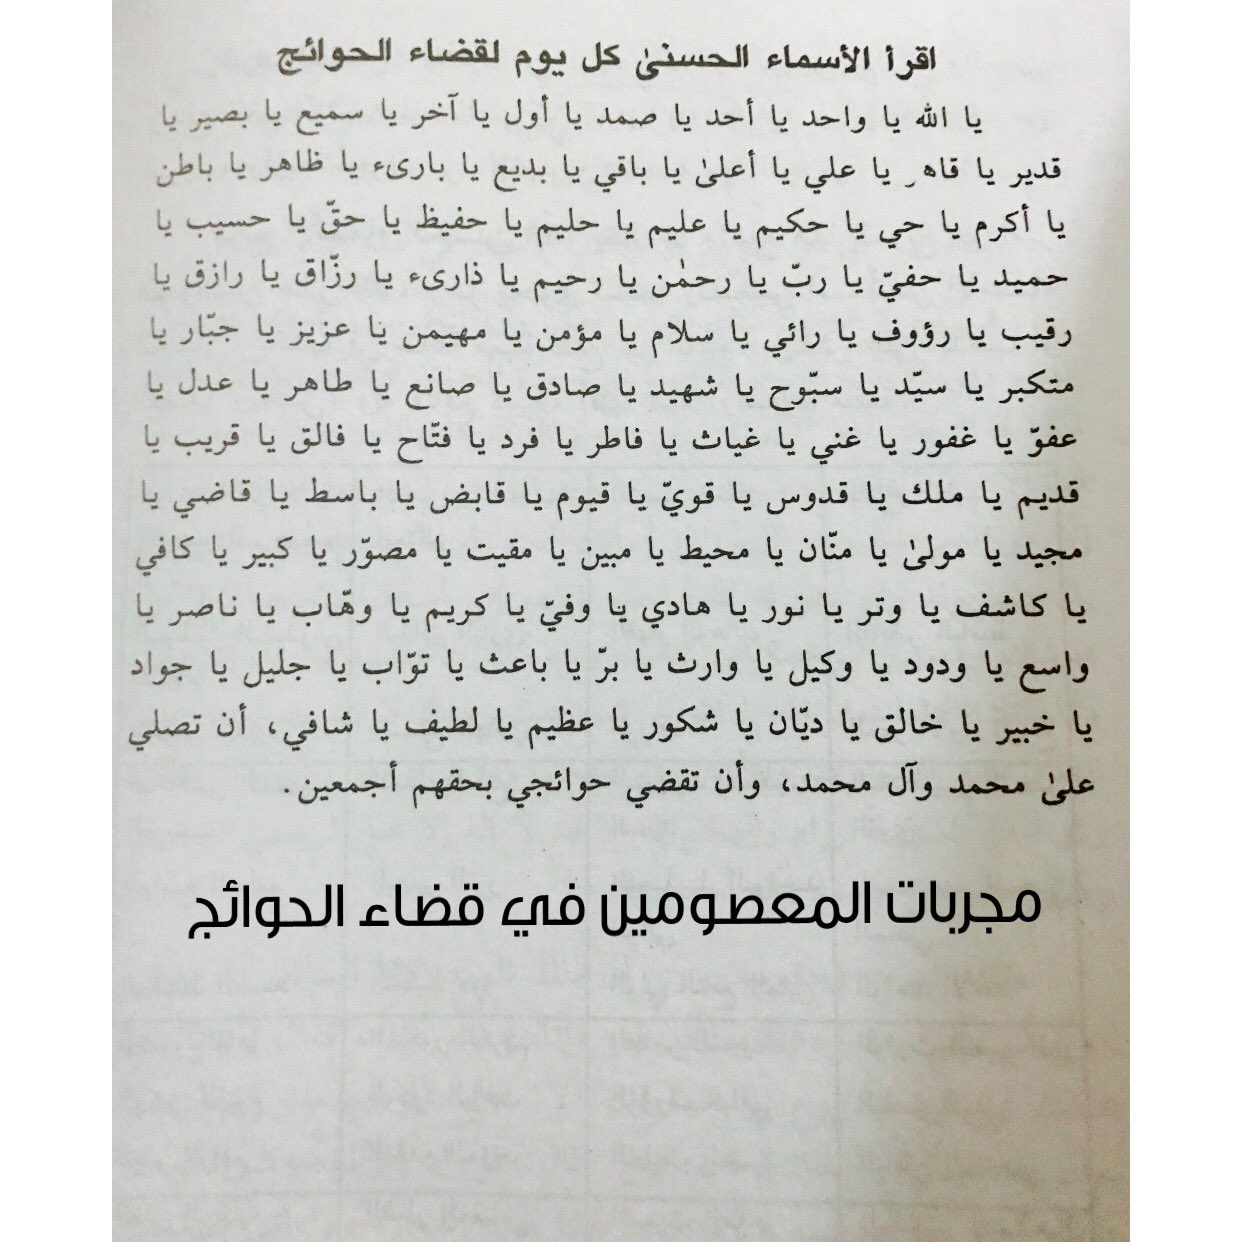 اقرأ الأسماء الحسنىٰ كل يوم لقضاء الحوائج
يا الله يا واحد يا أحد يا صمد يا أول يا آخر يا سميع يا بصير يا
قدير يا قاهر يا علي يا أعلىٰ يا باقي يا بديع يا بارىء يا ظاهر يا باطن
يا أكرم يا حي يا حكيم يا عليم يا حليم يا حفيظ يا حقّ يا حسيب يا
حميد يا حفيّ يا ربّ يا رحمٰن يا رحيم يا ذارىء يا رزّاق يا رازق يا
رقيب يا رؤوف يا رائي يا سلام يا مؤمن يا مهيمن يا عزيز يا جبّار يا
متكبر يا سيّد يا سبّوح يا شهيد يا صادق يا صانع يا طاهر يا عدل يا
عفوّ يا غفور يا غني يا غياث يا فاطر يا فرد يا فتّاح يا فالق يا قريب يا
قديم يا ملك يا قدوس يا قويّ يا قيوم يا قابض يا باسط يا قاضي يا
مجيد يا مولىٰ يا منّان يا محيط يا مبين يا مقيت يا مصوّر يا كبير يا كافي
يا كاشف يا وتر يا نور يا هادي يا وفيّ يا كريم يا وهّاب يا ناصر يا
واسع يا ودود يا وكيل يا وارث يا برّ يا باعث يا توّاب يا جليل يا جواد
يا خبير يا خالق يا ديّان يا شكور يا عظيم يا لطيف يا شافي، أن تصلي
علىٰ محمد وآل محمد، وأن تقضي حوائجي بحقهم أجمعين.
مجربات المعصومين في قضاء الحوائج